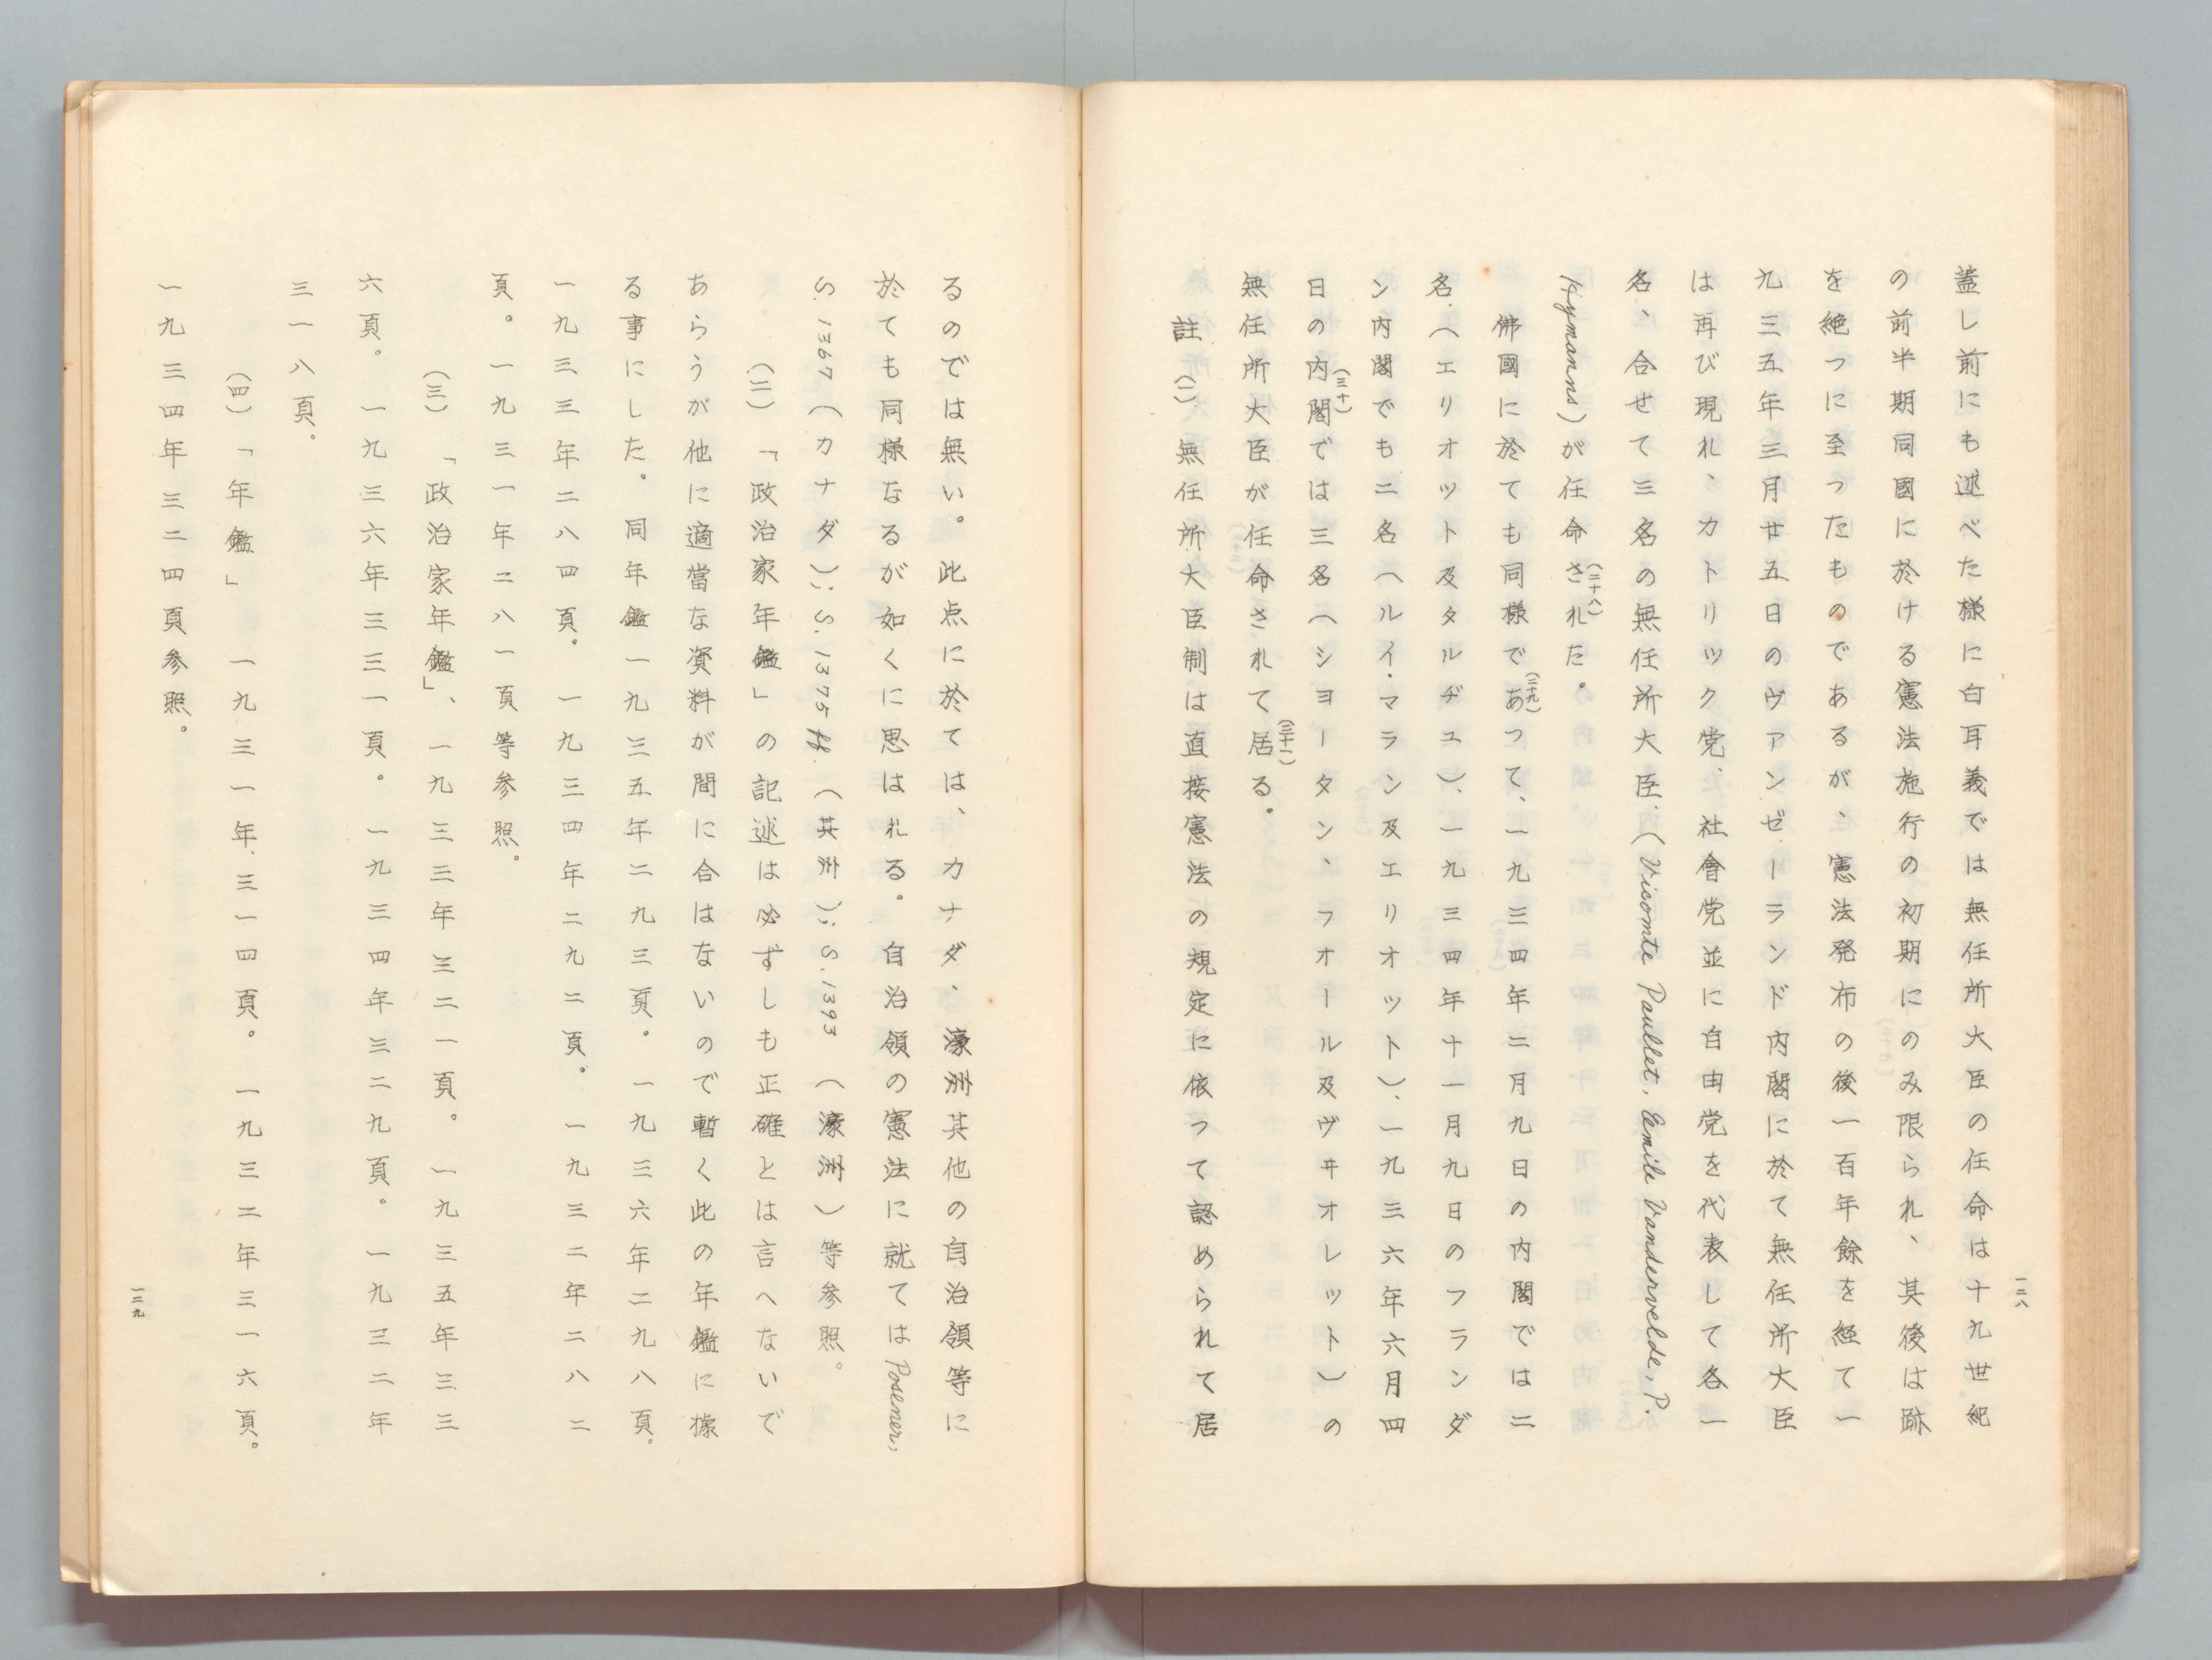 一二八
蓋し前にも述べた様に白耳義では無任所大臣の任命は十九世紀
の前半期同國に於ける憲法施行の初期にのみ限られ、其後は跡
を絶つに至つたものであるが、憲法発布の後一百年餘を経て一
九三五年三月廿五日のヴァンゼーランド内閣に於て無任所大臣
は再び現れ、カトリック党、社會党並に自由党を代表して各一
名、合せて三名の無任所大臣、(Visomte Paullet, Emile Vandervelde, P.
Hymanns)が任命された。(二十八)
佛國に於ても同様であつて、(二九)一九三四年二月九日の内閣では二
名、(エリオット及タルヂユ)、一九三四年十一月九日のフランダ
ン内閣でも二名(ルイ・マラン及エリオット)、一九三六年六月四
日の内閣(三十)では三名(ショータン、フオール及ヴヰオレット)の
無任所大臣が任命されて居る。(三十一)
註(一)無任所大臣制は直接憲法の規定に依つて認められて居
るのでは無い。此点に於ては、カナダ、濠洲其他の自治領等に
於ても同様なるが如くに思はれる。自治領の憲法に就てはPosener,
S. 1367(カナダ); S. 1375 ff.(其洲); S. 1393(濠洲)等参照。
(二)「政治家年鑑」の記述は必ずしも正確とは言へないで
あらうが他に適當な資料が間に合はないので暫く此の年鑑に據
る事にした。同年鑑一九三五年二九三頁。一九三六年二九八頁。
一九三三年二八四頁。一九三四年二九二頁。一九三二年二八二
頁。一九三一年二八一頁等参照。
(三)「政治家年鑑」、一九三三年三二一頁。一九三五年三三
六頁。一九三六年三三一頁。一九三四年三二九頁。一九三二年
三一八頁。
(四)「年鑑」 一九三一年、三一四頁。一九三二年三一六頁。
一九三四年三二四頁参照。
一二九